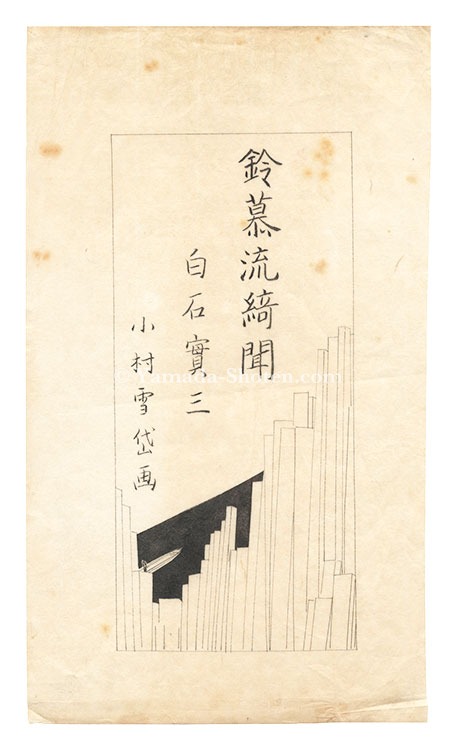 鈴慕流綺聞
白石實三
小村雪岱画
© Yamada-Shoten.com